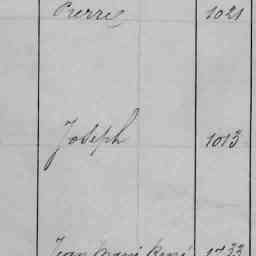 Pierre 1021
Joseph 1013
Jean Marie René 1733